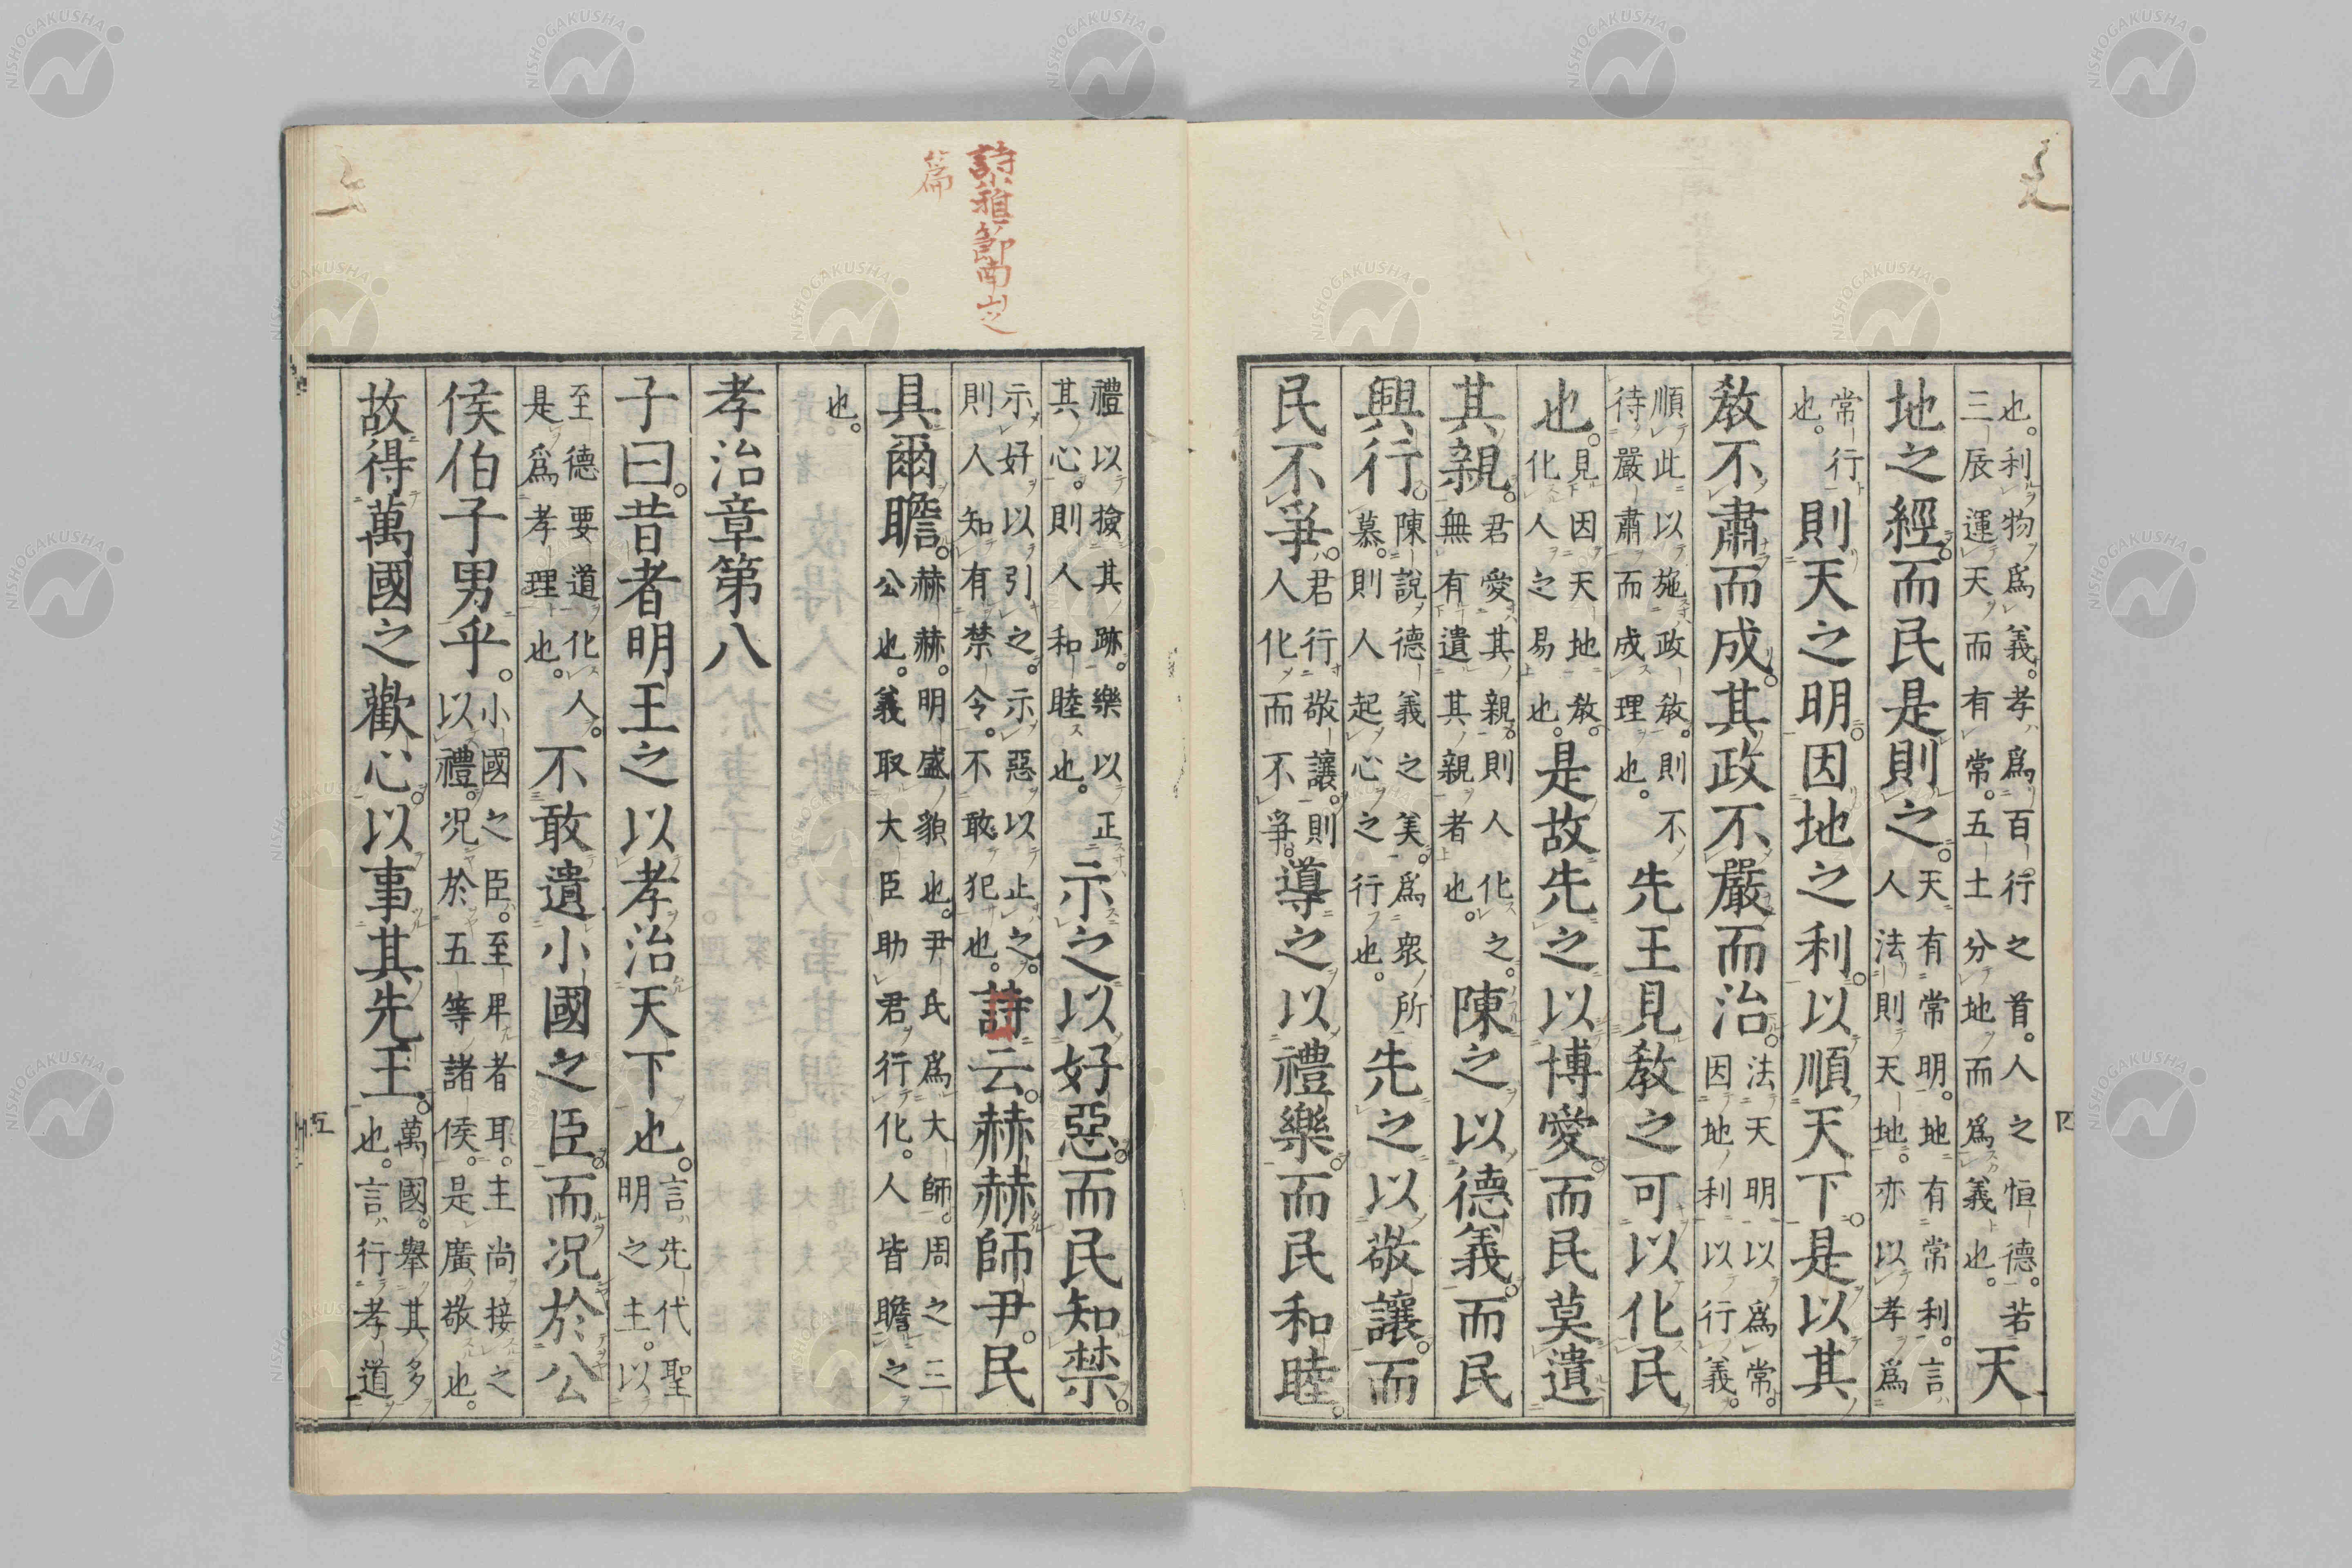 也。利物爲義。孝爲百行之首。人之恒德。若
三辰運天而有常。五土分地而爲義也。天
地之經。而民是則之。天有常明。地有常利。言
人法則天地。亦以孝爲
常行
也。則天之明。因地之利。以順天下。是以其
敎不肅而成。其政不嚴而治。法天明以爲常。
因地利以行義。
順此以施政敎。則不
待嚴肅而成理也。先王見敎之可以化民
也。見因天地敎。
化人之易也。是故先之以博愛。而民莫遺
其親。君愛其親。則人化之。
無有遺其親者也。陳之以德義。而民
興行。陳說德義之美。爲衆所
慕。則人起心之行也。先之以敬讓。而
民不爭。君行敬讓。則
人化而不爭。導之以禮樂。而民和睦。
禮以撿其跡。樂以正
其心。則人和睦也。示之以好惡。而民知禁。
示好以引之。示惡以止之。
則人知有禁令。不敢犯也。詩云。赫赫師尹。民
具爾瞻。赫赫。明盛貌也。尹氏爲大師。周之三
公也。義取大臣助君行化。人皆瞻之
也。
孝治章第八
子曰。昔者明王之以孝治天下也。言先代聖
明之主。以
至德要道化人。
是爲孝理也。不敢遺小國之臣。而况於公
侯伯子男乎。小國之臣。至卑者耳。主尚接之
以禮。况於五等諸侯。是廣敬也。
故得萬國之歡心。以事其先王。萬國。舉其多
也。言行孝道
詩雅節南山之
篇
四
五
NISHOGAKUSHA